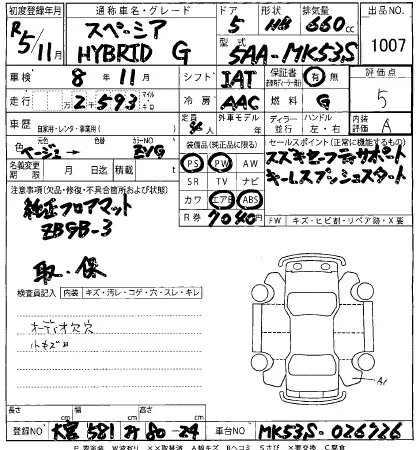 初度登録年月 通称車名・グレード ドア 形状 排気量 出品NO.
R5/11月 スペーシア HYBRID G 5 HB 660cc 1007
型式 5AA-MK53S
車検 8年11月 シフト IAT 保証書 有 無 評価点
走行 2593 マイル キロ 冷房 AAC 燃料 G 5
車歴 自家用・レンタ・事業用( ) 定員 4人 外車モデル 年 ディーラー 並行 ハンドル 左・右 内装評価 A
色 元色 ベージュ → 色替 カラーNO ZVG 装備品(純正品に限る) セールスポイント(正常に機能する装備)
名義変更期限 月 日 積載 t PS PW AW スズキセーフティサポート
注意事項(欠品・修復・不具合箇所および状態) SR TV ナビ キーレスプッシュスタート
純正フロアマット カワ エアB ABS
ZBGB-3 R券 7040円 FW キズ・ヒビ割・リペア跡・X要
取・保
検査員記入 内装 キズ・汚レ・コゲ・穴・スレ・キレ
オーディオ欠穴
小キズ
A1
長さ cm 幅 cm 高さ cm
登録NO 大宮 581 み 80-24 車台NO MK53S-026726